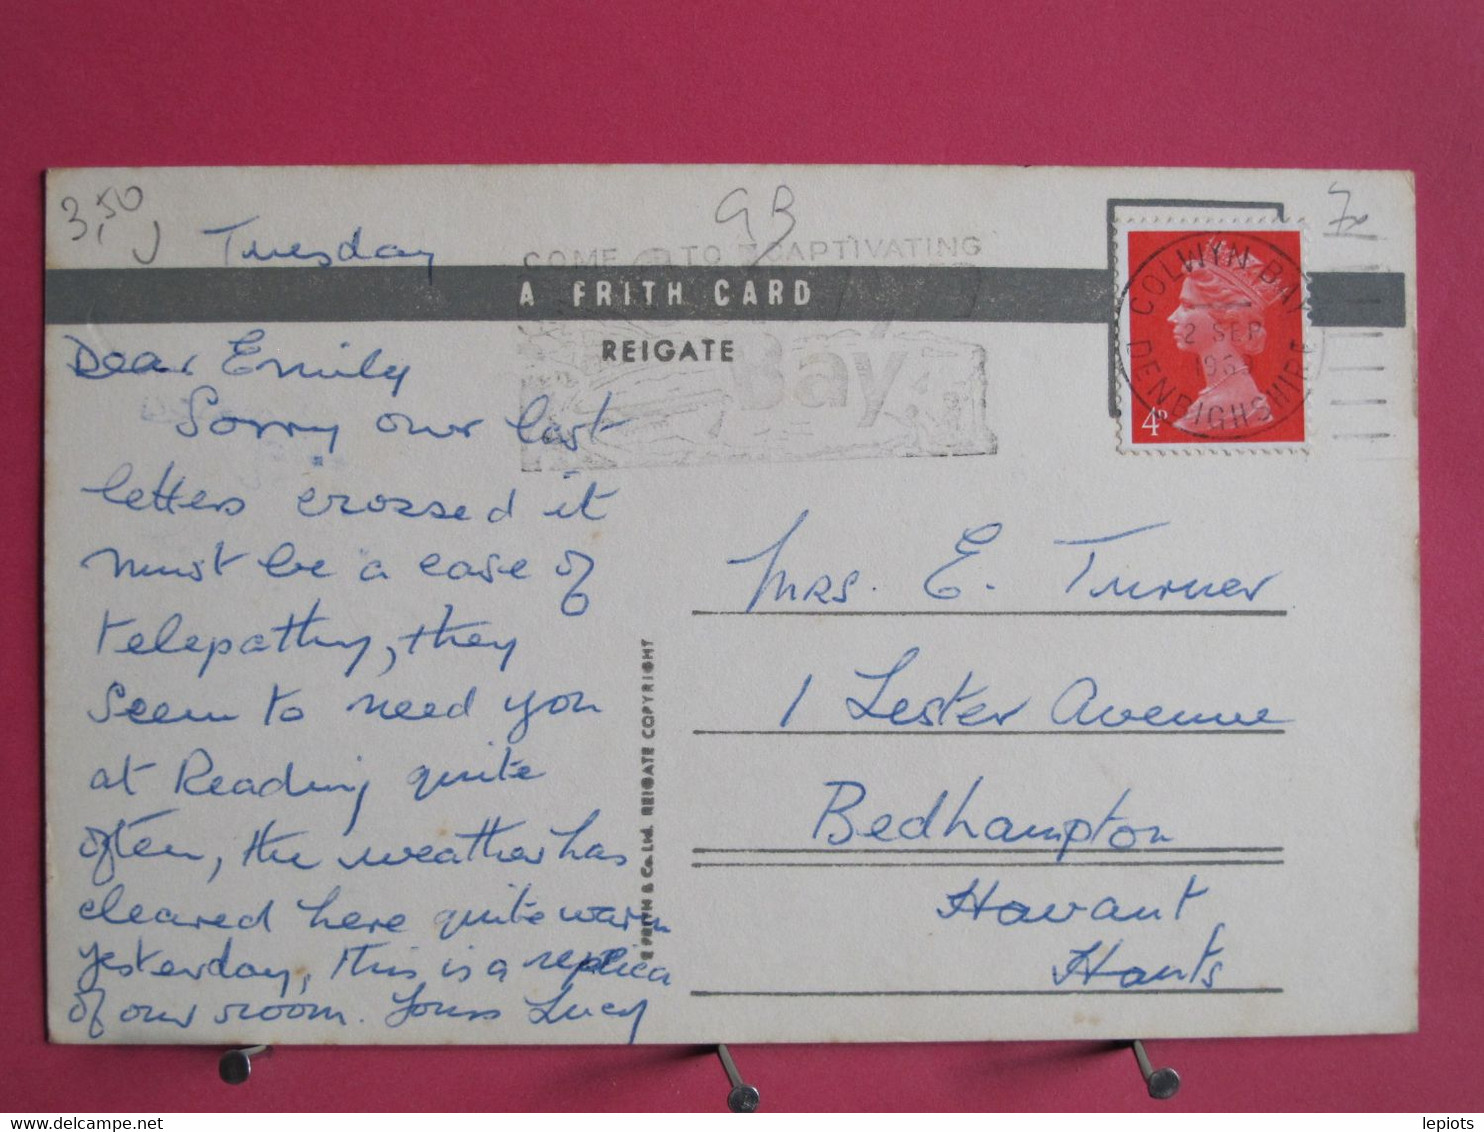 3,50
GB
7
Tuesday
COME TO CAPTIVATING
Bay
A FRITH CARD
REIGATE
COLWYN BAY
2 SEP
196
DENBIGHSHIRE
4D
Dear Emily
Sorry our last
letters crossed it
must be a case of
telepathy, they
seem to need you
at Reading quite
often, the weather has
cleared here quite warm
yesterday, this is a replica
of our room. Yours Lucy
Mrs. E. Turner
1 Lester Avenue
Bedhampton
Havant
Hants
FRITH & Co. Ltd. REIGATE COPYRIGHT
lepiots
delcampe.net